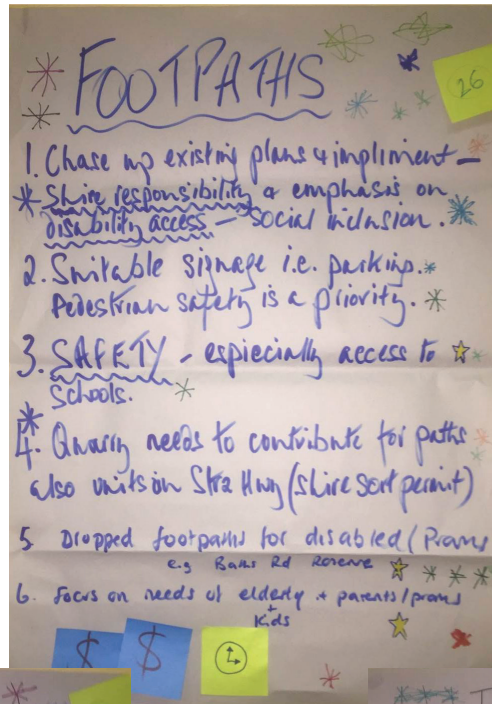 26
FOOTPATHS
1. Chase up existing plans & impliment –
Shire responsibility & emphasis on
disability access – social inclusion.
2. Suitable signage i.e. parking.
Pedestrian safety is a priority.
3. SAFETY – espiecially access to
Schools.
4. Quarry needs to contribute for paths
also units on Stra Hwy (shire sort permit)
5 Dropped footpaths for disabled / Prams
e.g Baths Rd Reserve
6. Focus on needs of elderly + parents / prams
+
Kids
$
$